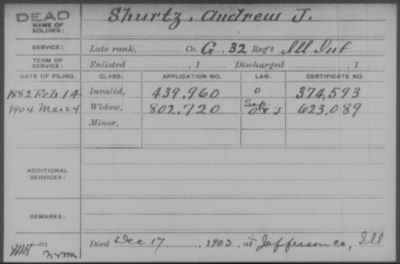 DEAD
NAME OF SOLDIER: Shurtz, Andrew J.
SERVICE: Late rank, Co. G. 32 Reg't Ill Inf
TERM OF SERVICE: Enlisted , 1 Discharged , 1
DATE OF FILING. CLASS. APPLICATION NO. LAW. CERTIFICATE NO.
1882 Feb 14 Invalid, 439,960 O 374,593
1904 Mar 24 Widow, 802,720 623,089
Minor,
ADDITIONAL SERVICES:
REMARKS:
Died Dec 17, 1903, at Jefferson Co, Ill